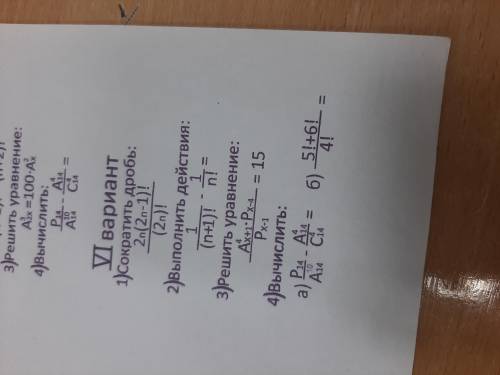 3)Решить уравнение:
A³₂ₓ=100·A²ₓ
4)Вычислить:
P₁₄/A¹⁰₁₄ - A⁴₁₄/C⁴₁₄ =
VI вариант
1)Сократить дробь:
2n(2n−1)!/(2n)!
2)Выполнить действия:
1/(n+1)! - 1/n! =
3)Решить уравнение:
A⁴ₓ₊₁·Pₓ₋₄/Pₓ₋₁ = 15
4)Вычислить:
а) P₁₄/A¹⁰₁₄ - A⁴₁₄/C⁴₁₄ = б) 5!+6!/4! =